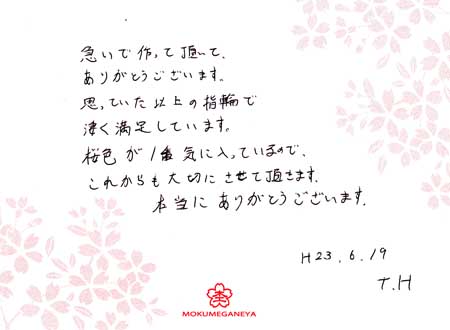 急いで作って頂いて、
ありがとうございます。
思っていた以上の指輪で
凄く満足しています。
桜色が1番気に入っているので、
これからも大切にさせて頂きます。
本当にありがとうございます。
H23.6.19
T.H
MOKUMEGANEYA